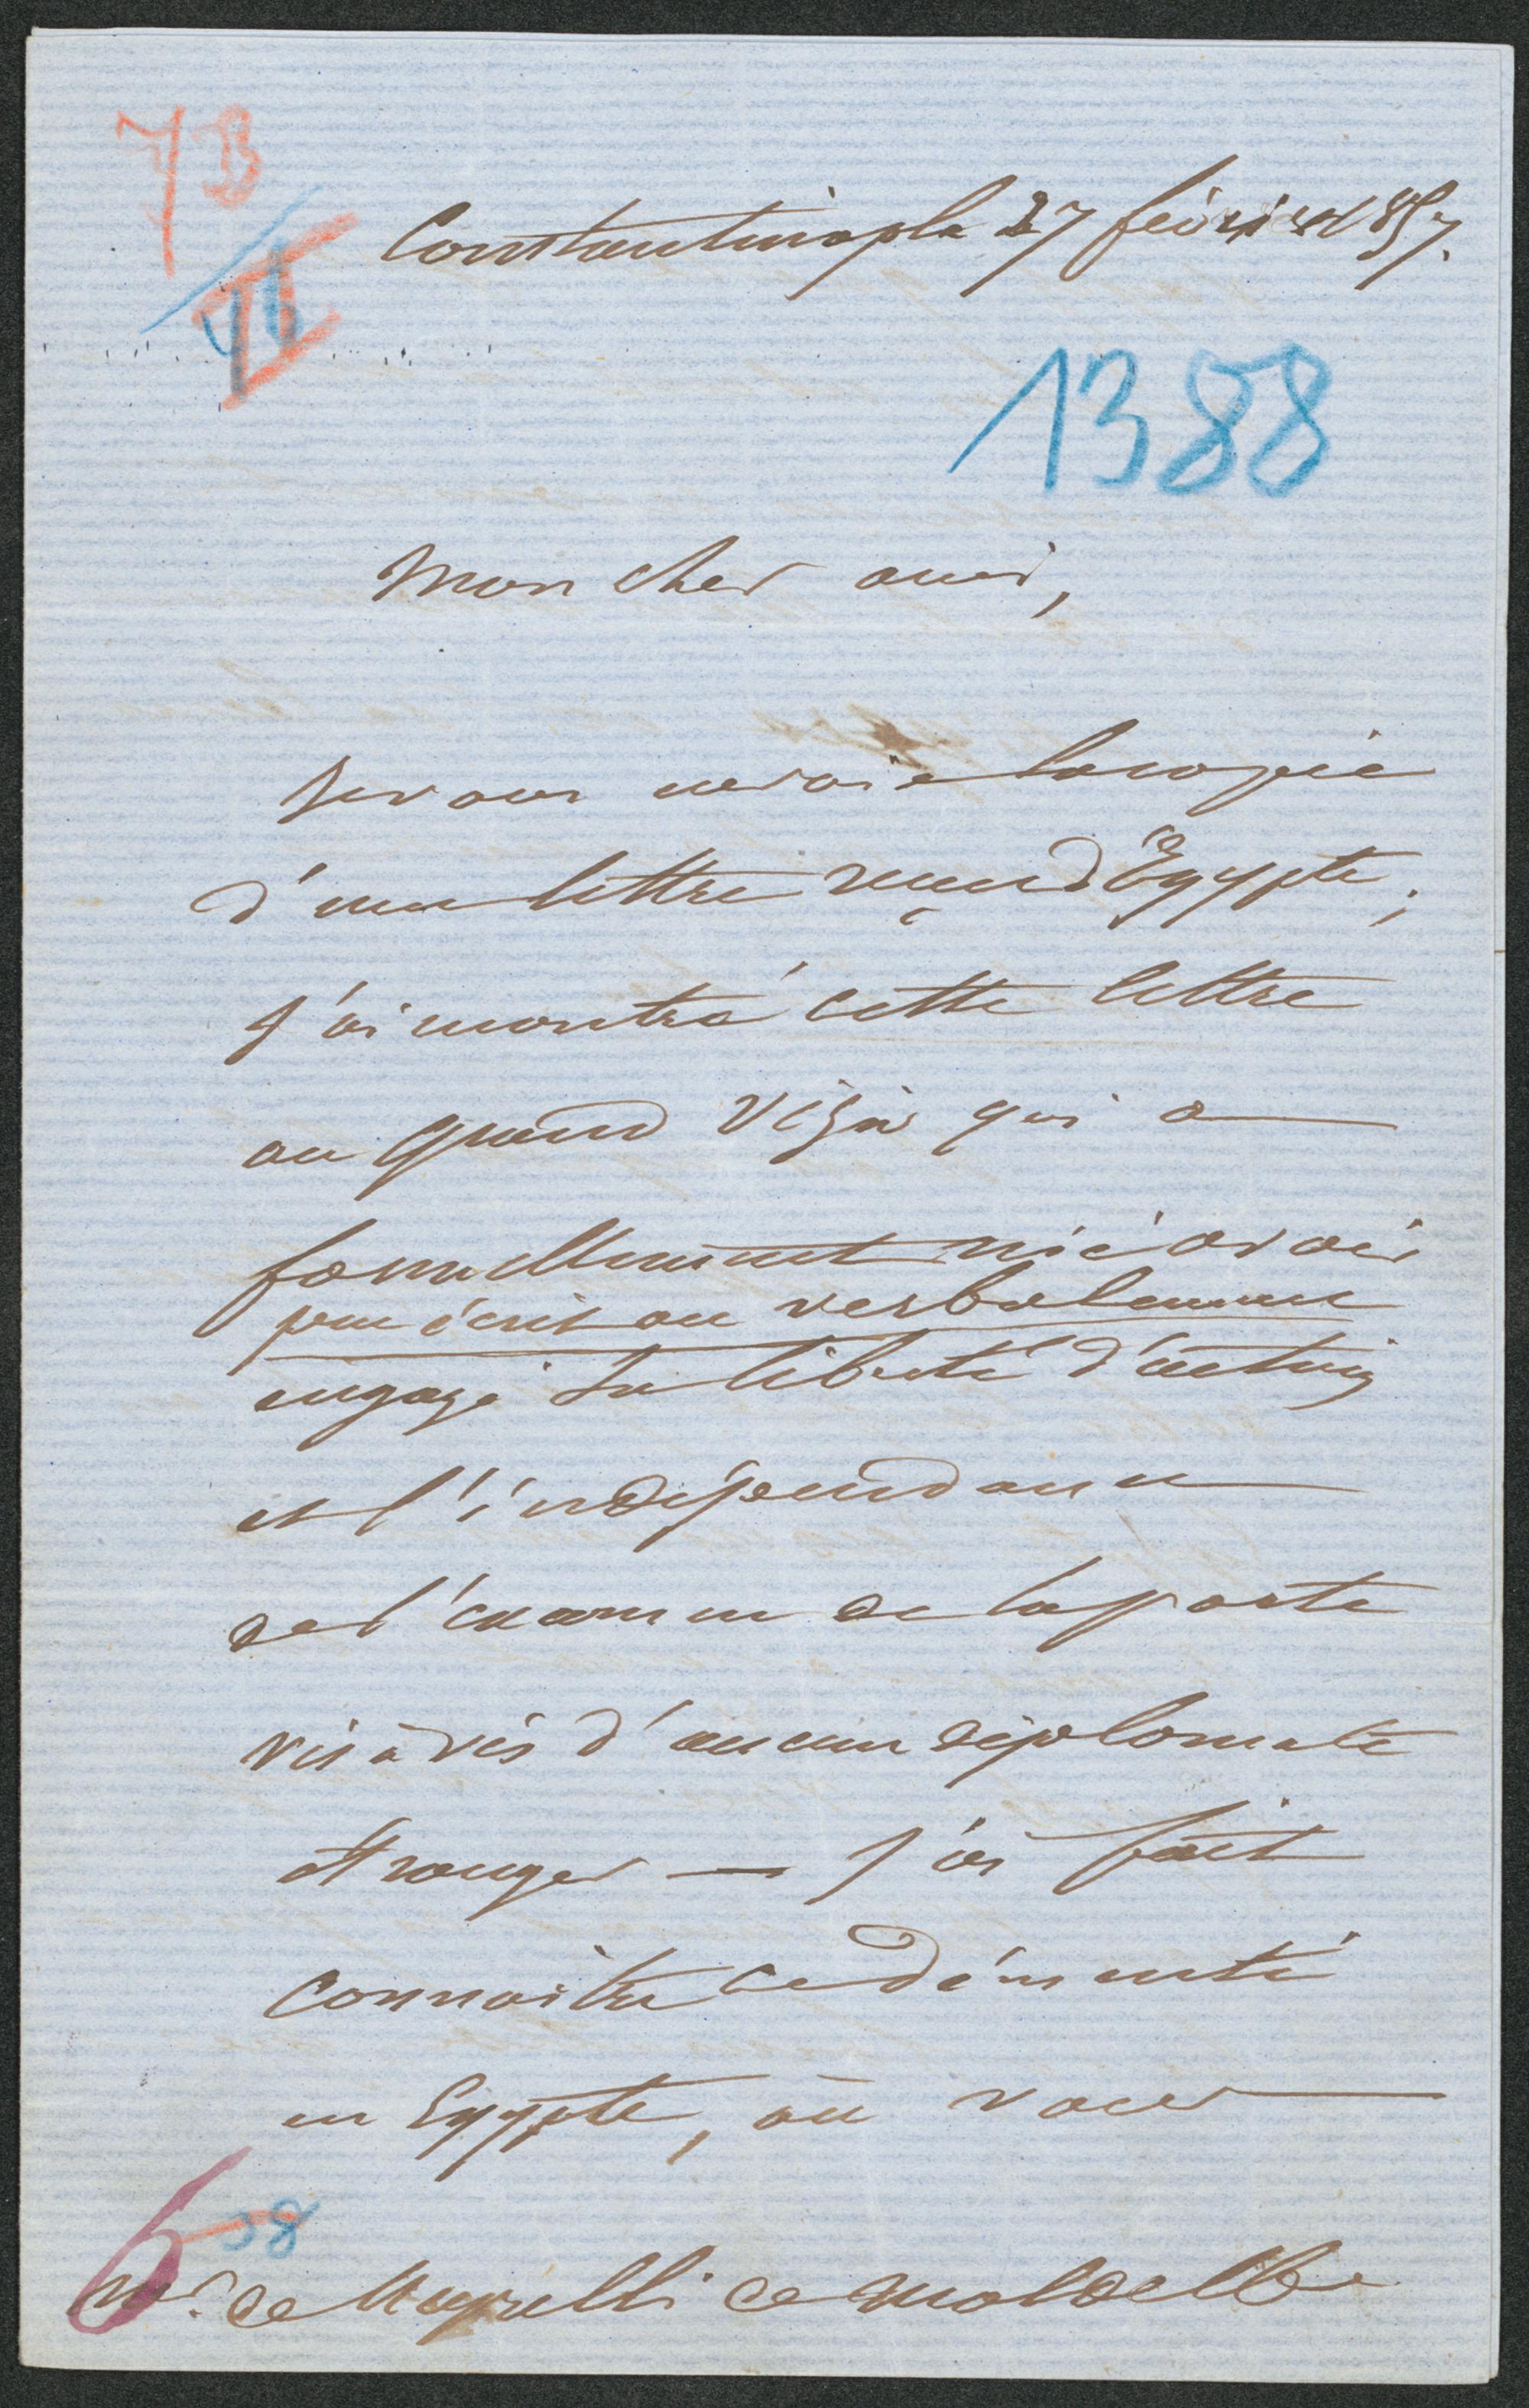 7B
II
Constantinople 27 février 1857.
1388
Mon cher ami,
Je vous envoie la copie
d'une lettre reçue d'Égypte;
J'ai montré cette lettre
au grand vizir qui a
formellement nié avoir
par écrit ou verbalement
engagé la liberté d'action
et l'indépendance
de l'examen de la porte
vis à vis d'aucun diplomate
étranger — J'ai fait
connaître ce démenti
en Egypte, où vous
6 58
Mr. de Negrelli de Moldelbe